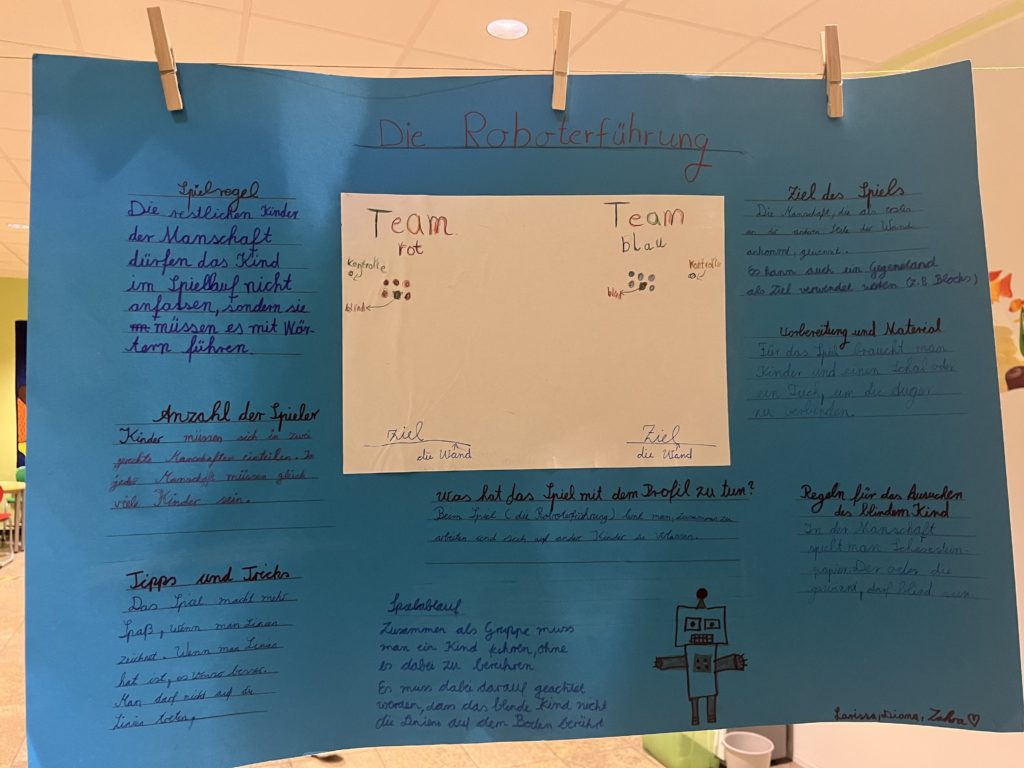 Die Roboterführung
Spielregel
Die restlichen Kinder
der Manschaft
dürfen das Kind
im Spiellauf nicht
anfassen, sondern sie
müssen es mit Wör-
tern führen.
Anzahl der Spieler
Kinder müssen sich in zwei
gerechte Manschaften einteilen. In
jeder Manschaft müssen gleich
viele Kinder sein.
Tipps und Tricks
Das Spiel macht mehr
Spaß, wenn man Linien
zeichnet. Wenn man Linien
hat ist, es besser.
Man darf nicht auf die
Linien treten,
Team
rot
Kontrolle
blind
Team
blau
Kontrolle
Ziel
die Wand
Ziel
die Wand
Was hat das Spiel mit dem Profil zu tun?
Beim Spiel (die Roboterführung) lernt man, zusammen zu
arbeiten und sich auf andere Kinder zu verlassen.
Spielablauf
Zusammen als Gruppe muss
man ein Kind führen, ohne
es dabei zu berühren.
Es muss dabei darauf geachtet
werden, dass das blinde Kind nicht
die Linien auf dem Boden berührt
Ziel des Spiels
Die Manschaft, die als ersten
an der anderen Seite der Wand
ankommt, gewinnt.
Es kann auch ein Gegenstand
als Ziel verwendet werden (z.B Blocks)
Vorbereitung und Material
Für das Spiel braucht man
Kinder und einen Schal oder
ein Tuch, um die Augen
zu verbinden.
Regeln für das Aussuchen
des blindem Kind
In der Manschaft
spielt man Scherestein-
papier. Der oder die
gewinnt, darf blind sein
Larissa, Diana, Zahra♡